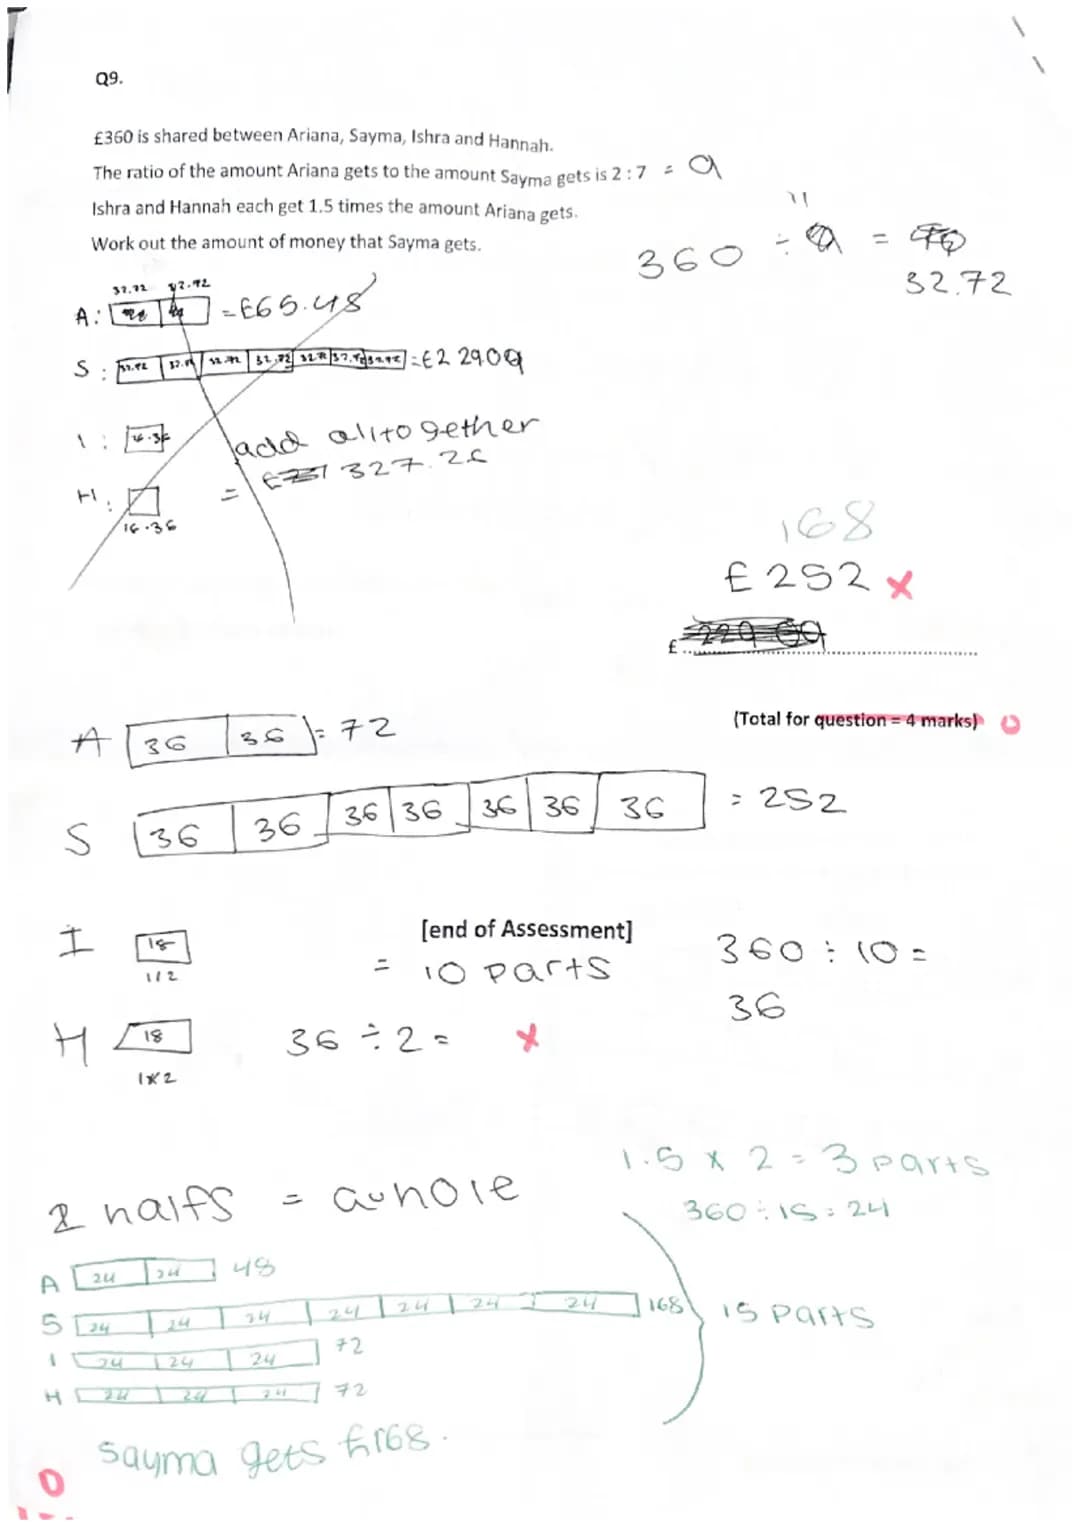 Q9.
£360 is shared between Ariana, Sayma, Ishra and Hannah.
The ratio of the amount Ariana gets to the amount Sayma gets is 2 : 7 = 9
Ishra and Hannah each get 1.5 times the amount Ariana gets.
Work out the amount of money that Sayma gets.
11
360 ÷ =
32.72
32.72 32.72
A: = £65.48
S: 32.72 32.72 32.72 32.72 32.72 32.72 32.72 = £2 29.09
I: 16.36
add alltogether
H:
= 327.26
16.36
168
£252 x
£
(Total for question = 4 marks) 0
A 36 36 = 72
S 36 36 36 36 36 36 36 = 252
[end of Assessment]
I 18
1/2
= 10 parts
360 ÷ 10 =
36
H 18
36 ÷ 2 = x
1x2
1.5 x 2 = 3 parts
2 halfs = awhole
360 ÷ 15 = 24
A 24 24 48
S 24 24 24 24 24 24 24 168
15 parts
I 24 24 24 72
H 24 24 24 72
Sayma gets £168.
0